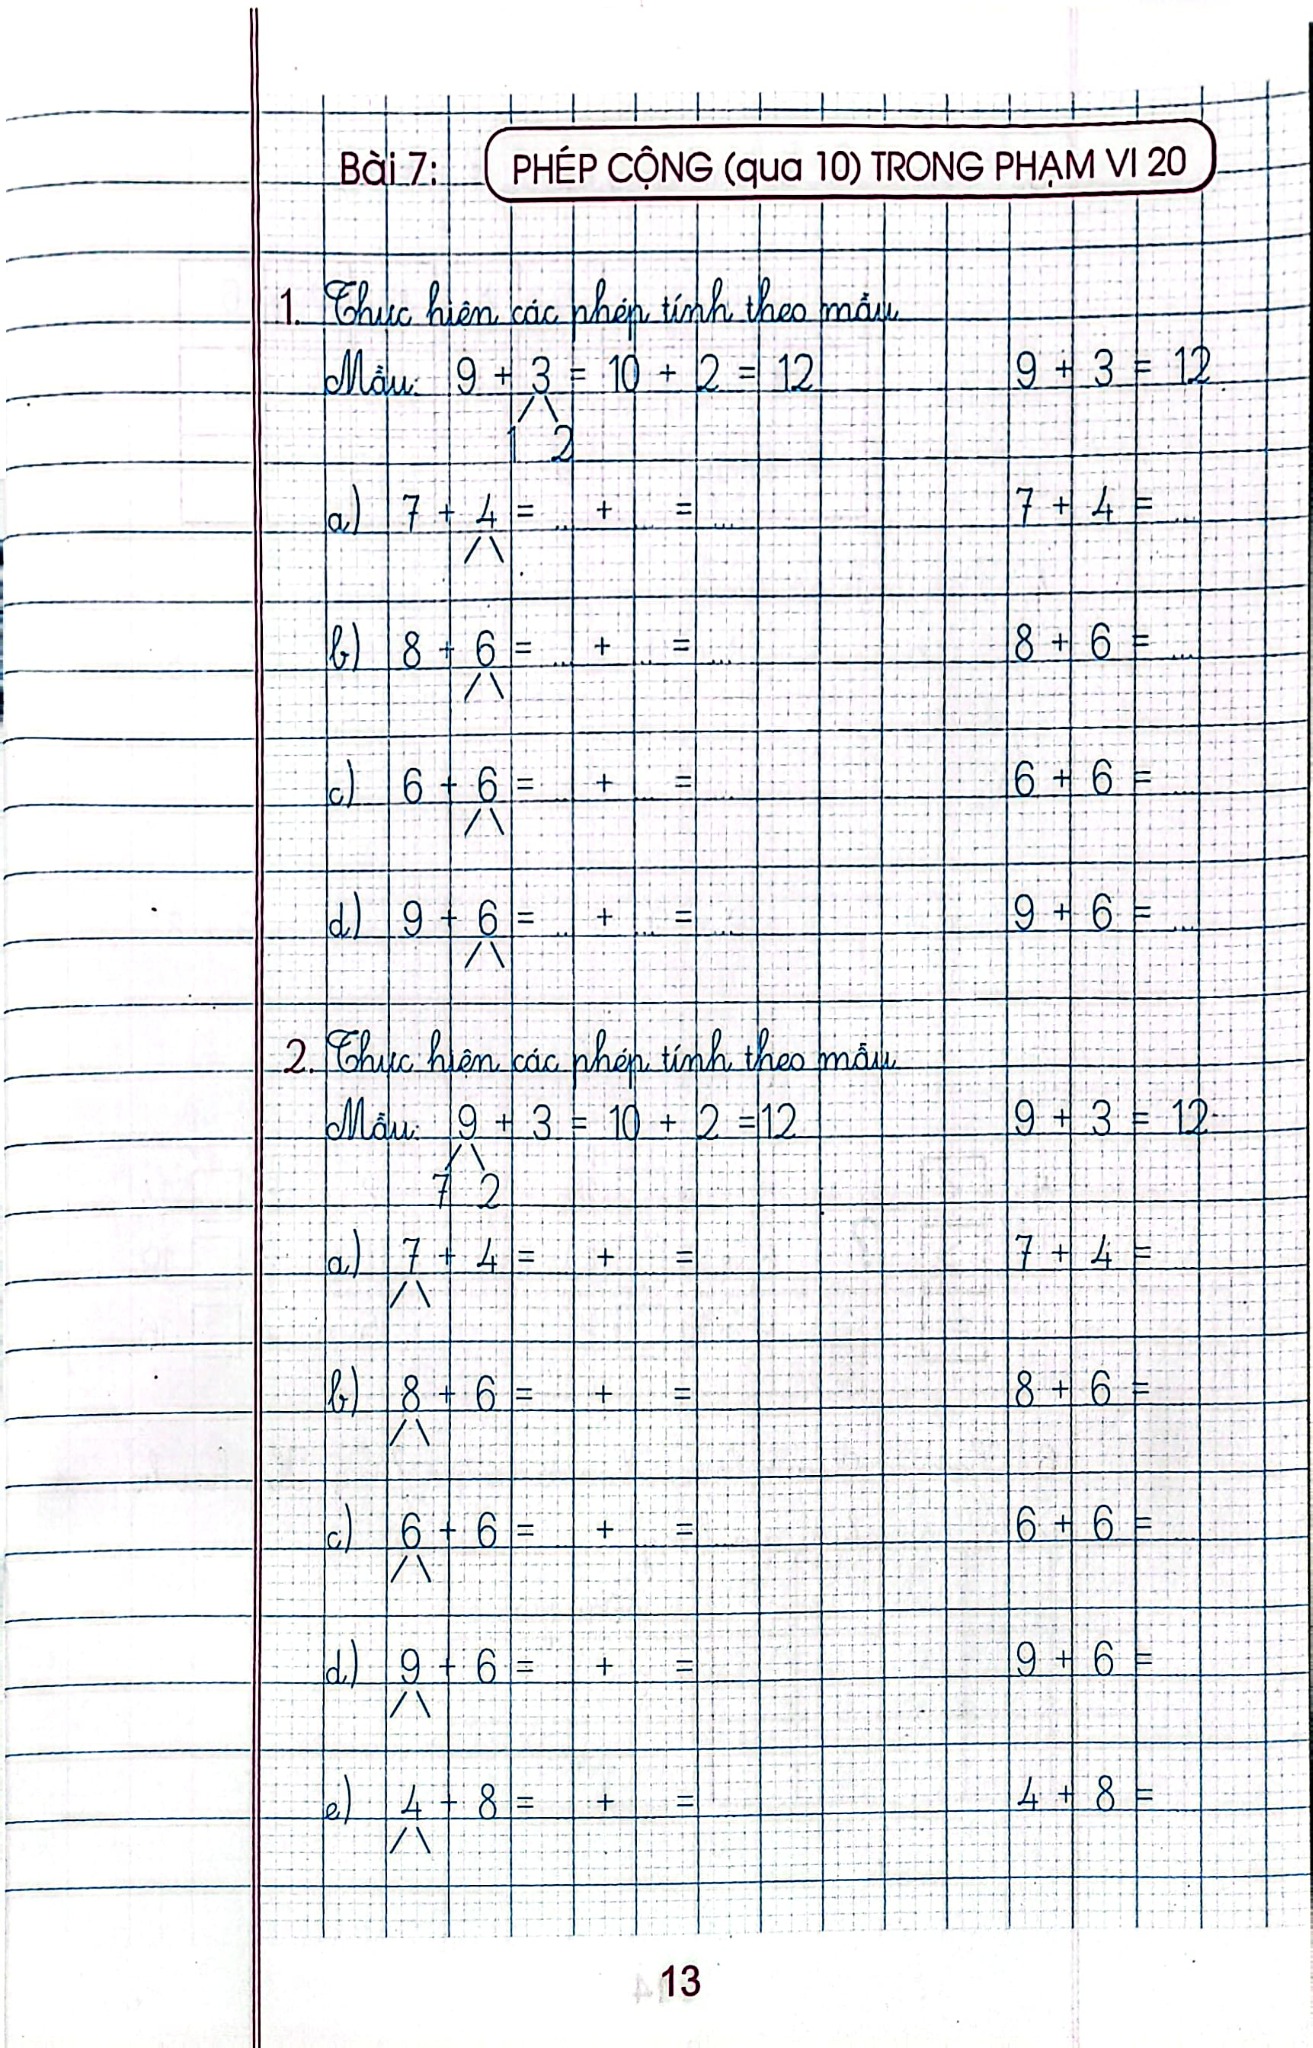 Bài 7: PHÉP CỘNG (qua 10) TRONG PHẠM VI 20
1. Thực hiện các phép tính theo mẫu
Mẫu: 9 + 3 = 10 + 2 = 12 9 + 3 = 12
1 2
a) 7 + 4 = ... + ... = ... 7 + 4 = ...
b) 8 + 6 = ... + ... = ... 8 + 6 = ...
c) 6 + 6 = ... + ... = ... 6 + 6 = ...
d) 9 + 6 = ... + ... = ... 9 + 6 = ...
2. Thực hiện các phép tính theo mẫu
Mẫu: 9 + 3 = 10 + 2 = 12 9 + 3 = 12
7 2
a) 7 + 4 = + = 7 + 4 =
b) 8 + 6 = + = 8 + 6 =
c) 6 + 6 = ... + ... = ... 6 + 6 = ...
d) 9 + 6 = + = 9 + 6 =
e) 4 + 8 = + = 4 + 8 =
13